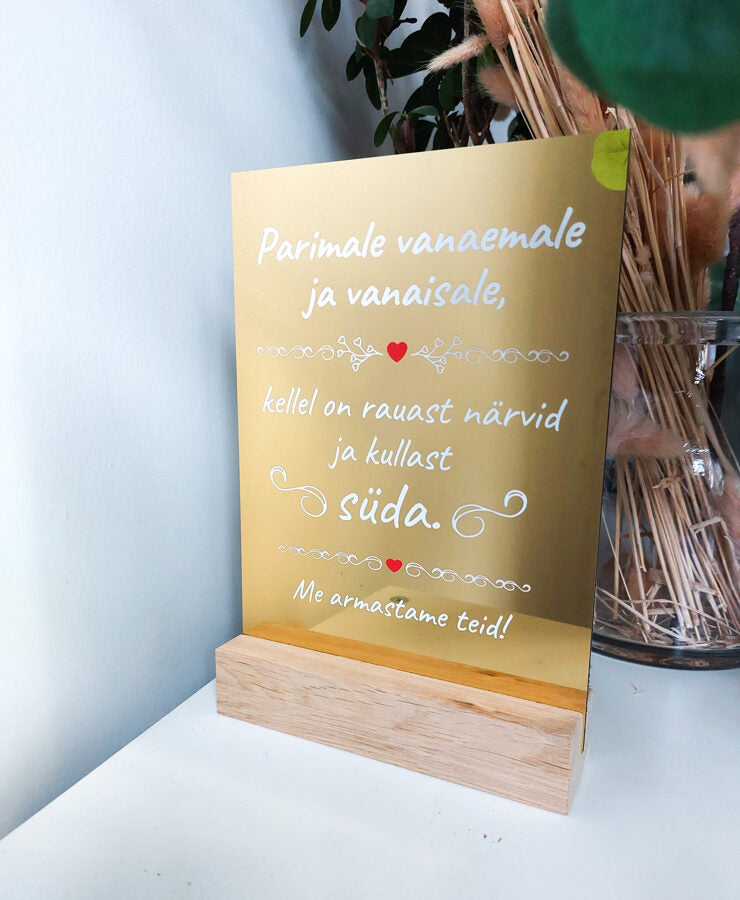 Parimale vanaemale
ja vanaisale,
kellel on rauast närvid
ja kullast
süda.
Me armastame teid!